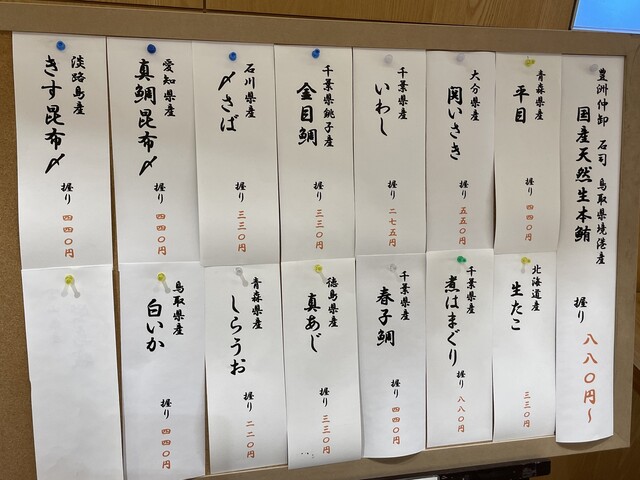 豊洲仲卸 石司 鳥取県境港産
国産天然生本鮪
握り 八八〇円〜
青森県産
平目
握り 四四〇円
大分県産
関いさき
握り 五五〇円
千葉県産
いわし
握り 二七五円
千葉県銚子産
金目鯛
握り 三三〇円
石川県産
〆さば
握り 三三〇円
愛知県産
真鯛昆布〆
握り 四四〇円
淡路島産
きす昆布〆
握り 四四〇円
北海道産
生たこ
握り 三三〇円
千葉県産
煮はまぐり
握り 八八〇円
千葉県産
春子鯛
握り 四四〇円
徳島県産
真あじ
握り 三三〇円
青森県産
しらうお
握り 二二〇円
鳥取県産
白いか
握り 四四〇円